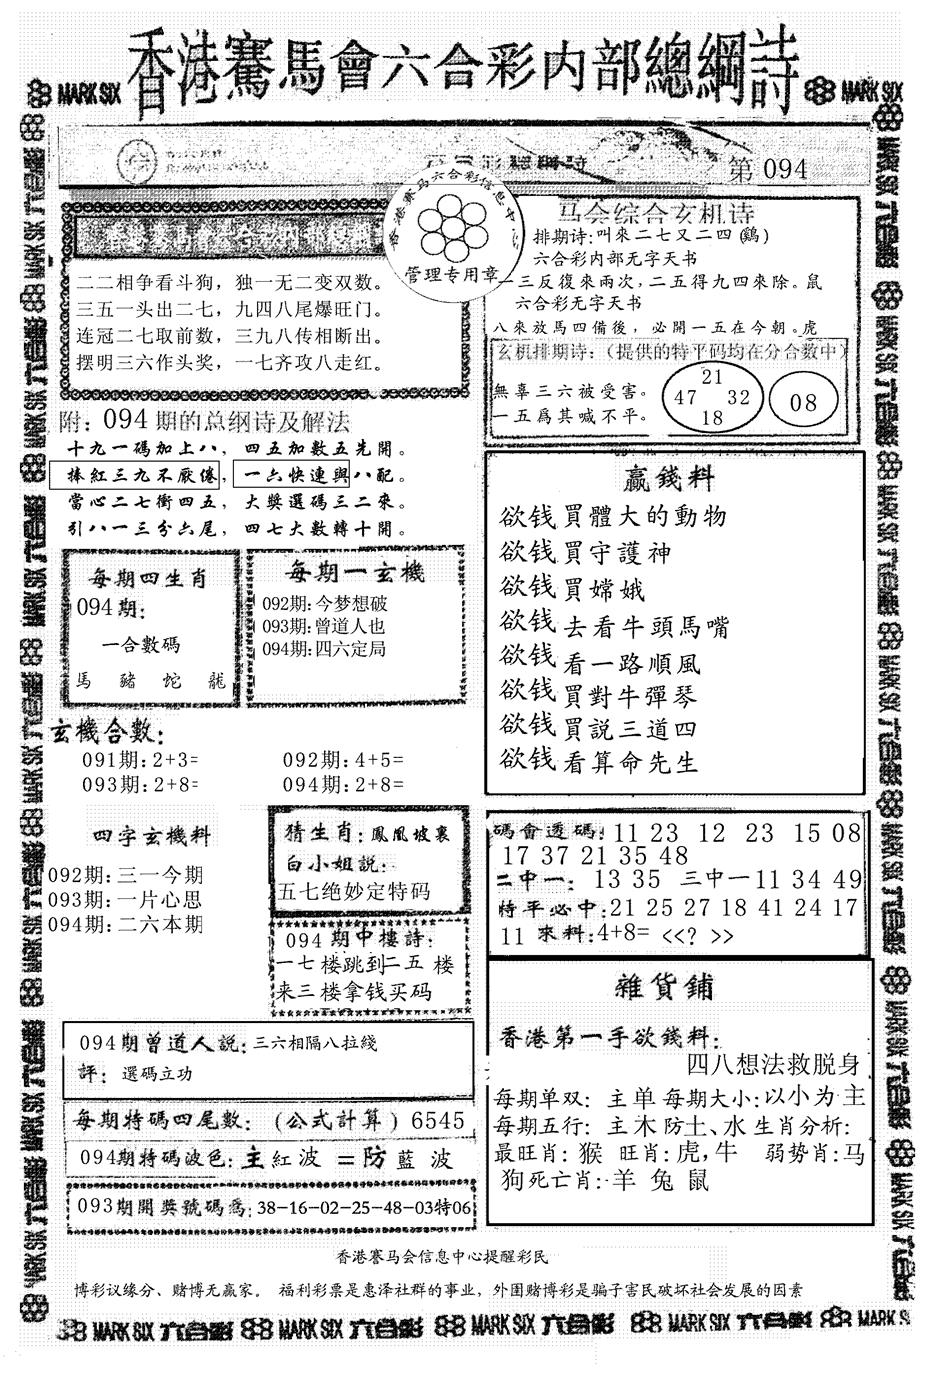 香港賽馬會六合彩内部總綱詩
MARK SIX
MARK SIX
第 094
香港赛马六合彩信息中心
管理专用章
二二相争看斗狗，独一无二变双数。
三五一头出二七，九四八尾爆旺门。
连冠二七取前数，三九八传相断出。
摆明三六作头奖，一七齐攻八走红。
马会综合玄机诗
排期诗:叫來二七又二四(鷄)
六合彩内部无字天书
一三反復來兩次，二五得九四來除。鼠
六合彩无字天书
八來放馬四備後，必開一五在今朝。虎
玄机排期诗：(提供的特平码均在分合数中)
無辜三六被受害。
一五爲其喊不平。
21
47 32
18
08
附：094期的总纲诗及解法
十九一碼加上八，四五加數五先開。
捧紅三九不厭倦，一六快連與八配。
當心二七衝四五，大獎選碼三二來。
引八一三分六尾，四七大數轉十開。
每期四生肖
094期:
一合數碼
馬 豬 蛇 龍
每期一玄機
092期:今梦想破
093期:曾道人也
094期:四六定局
赢錢料
欲钱買體大的動物
欲钱買守護神
欲钱買嫦娥
欲钱去看牛頭馬嘴
欲钱看一路順風
欲钱買對牛彈琴
欲钱買説三道四
欲钱看算命先生
玄機合數:
091期:2+3= 092期:4+5=
093期:2+8= 094期:2+8=
四字玄機料
092期:三一今期
093期:一片心思
094期:二六本期
猜生肖:鳳凰坡裏
白小姐説:
五七绝妙定特码
094期中樓詩:
一七楼跳到二五楼
来三楼拿钱买码
碼會透碼:11 23 12 23 15 08
17 37 21 35 48
二中一: 13 35 三中一11 34 49
特平必中:21 25 27 18 41 24 17
11 來料:4+8= <<? >>
雜貨鋪
香港第一手欲錢料:
四八想法救脱身
每期单双: 主单 每期大小:以小为主
每期五行: 主木防土、水 生肖分析:
最旺肖: 猴 旺肖:虎,牛 弱势肖:马
狗死亡肖:羊 兔 鼠
094期曾道人説:三六相隔八拉綫
評: 選碼立功
每期特碼四尾數: (公式計算) 6545
094期特碼波色:主紅波=防藍波
093期開獎號碼爲:38-16-02-25-48-03特06
香港赛马会信息中心提醒彩民
博彩议缘分、赌博无赢家。 福利彩票是惠泽社群的事业，外围赌博彩是骗子害民破坏社会发展的因素
MARK SIX 六合彩 MARK SIX 六合彩 MARK SIX 六合彩 MARK SIX 六合彩 MARK SIX